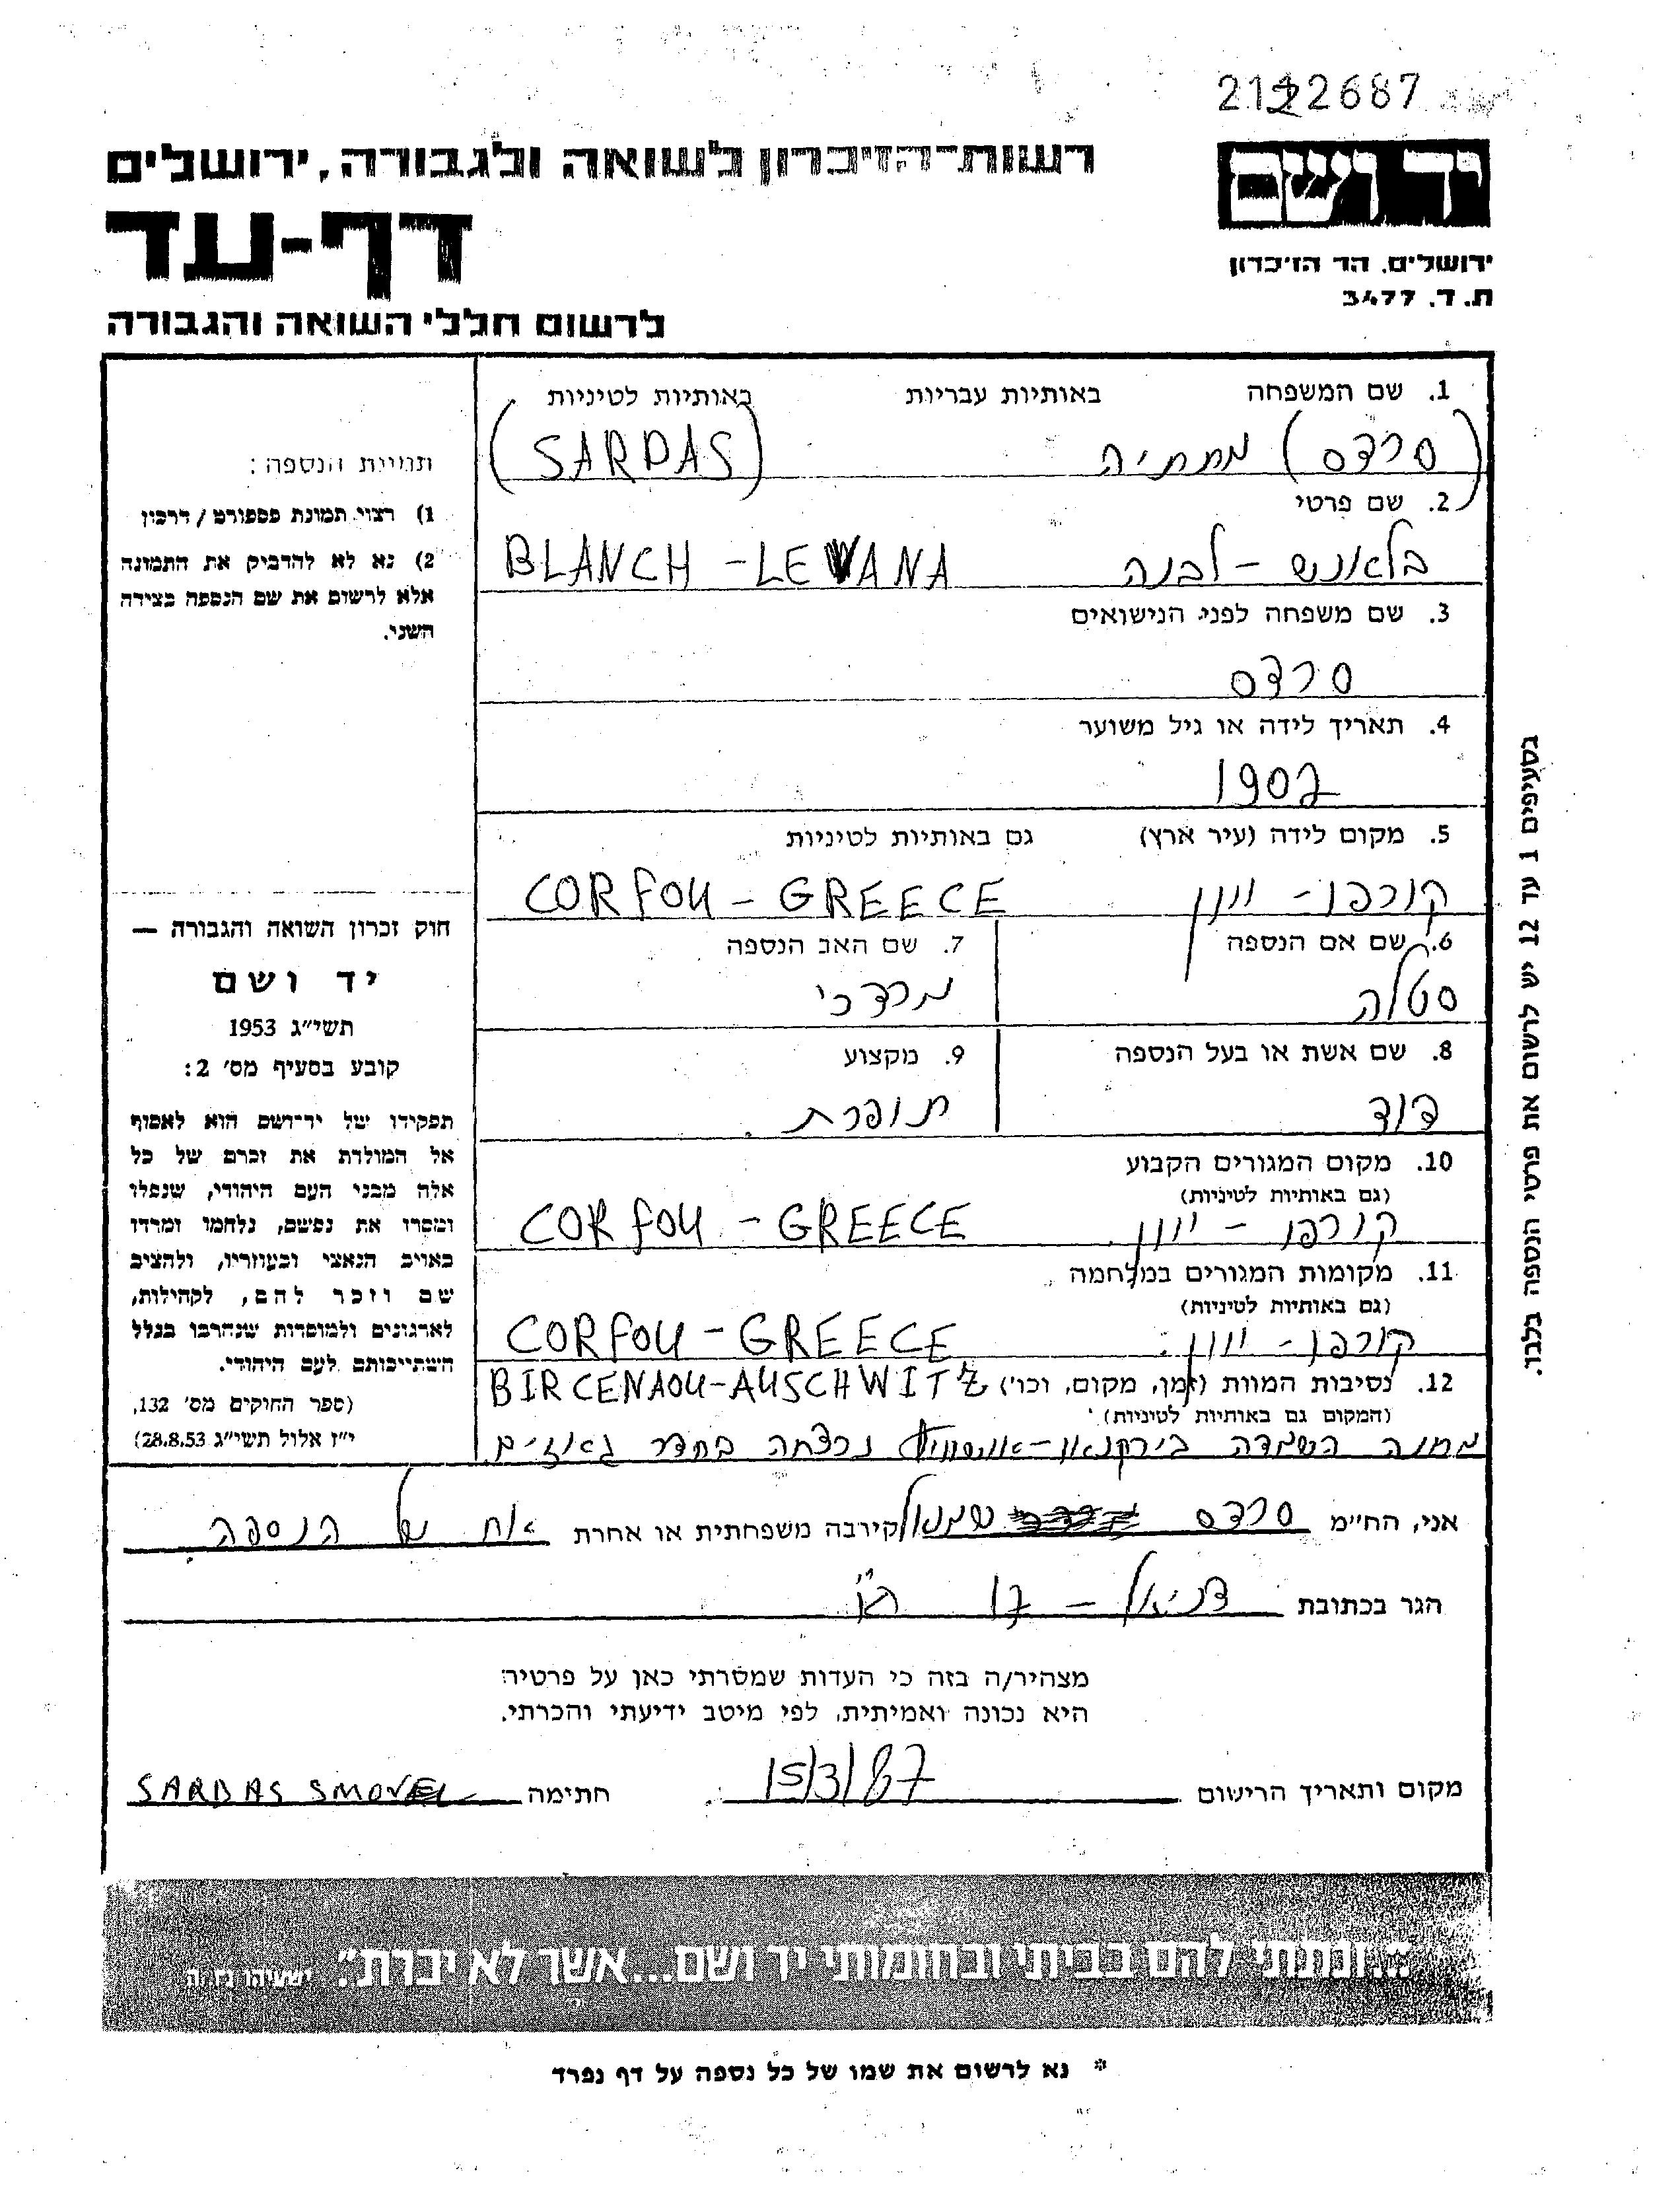 2112687
רשות־הזיכרון לשואה ולגבורה, ירושלים
יד ושם
דף-עד
ירושלים, הר הזיכרון
ת. ד. 3477
לרשום חללי השואה והגבורה
1. שם המשפחה באותיות עבריות באותיות לטיניות
(סרדס) מתתיה (SARDAS)
2. שם פרטי
בלאנש - לבנה BLANCH - LEVANA
3. שם משפחה לפני הנישואים
סרדס
4. תאריך לידה או גיל משוער
1902
5. מקום לידה (עיר ארץ) גם באותיות לטיניות
קורפו - יוון CORFOU - GREECE
6. שם אם הנספה 7. שם האב הנספה
סטלה מרדכי
8. שם אשת או בעל הנספה 9. מקצוע
דוד תופרת
10. מקום המגורים הקבוע
(גם באותיות לטיניות)
קורפו - יוון CORFOU - GREECE
11. מקומות המגורים במלחמה
(גם באותיות לטיניות)
קורפו - יוון CORFOU - GREECE
12. נסיבות המוות (זמן, מקום, וכו') BIRCENAOU-AUSCHWITZ
(המקום גם באותיות לטיניות)
מחנה השמדה בירקנאו - אושוויץ נרצחה בחדר גאזים
תמונת הנספה:
1) רצוי תמונת פספורט / דרכון
2) נא לא להדביק את התמונה
אלא לרשום את שם הנספה בצידה
השני.
חוק זכרון השואה והגבורה —
יד ושם
תשי״ג 1953
קובע בסעיף מס׳ 2:
תפקידו של יד־ושם הוא לאסוף
אל המולדת את זכרם של כל
אלה מבני העם היהודי, שנפלו
ומסרו את נפשם, נלחמו ומרדו
באויב הנאצי ובעוזריו, ולהציב
שם וזכר להם, לקהילות,
לארגונים ולמוסדות שנחרבו בגלל
השתייכותם לעם היהודי.
(ספר החוקים מס׳ 132,
י״ז אלול תשי״ג 28.8.53)
בסעיפים 1 עד 12 יש לרשום את פרטי הנספה בלבד.
אני, הח״מ סרדס שמואל קירבה משפחתית או אחרת אח של הנספה
הגר בכתובת דניאל - 17
מצהיר/ה בזה כי העדות שמסרתי כאן על פרטיה
היא נכונה ואמיתית, לפי מיטב ידיעתי והכרתי.
מקום ותאריך הרישום 15/3/87 חתימה SARDAS SMOUEL
״...ונתתי להם בביתי ובחומותי יד ושם...אשר לא יכרת״. ישעיהו נו, ה
* נא לרשום את שמו של כל נספה על דף נפרד